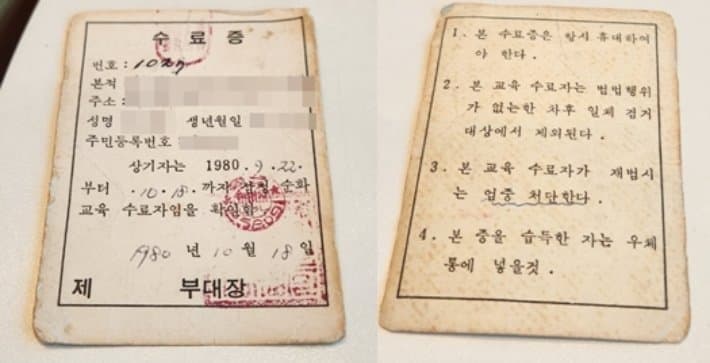 수료증
번호 : 1027
본적
주소 :
성명 생년월일
주민등록번호
상기자는 1980. 9. 22.
부터 . 10. 18. 까지 순화
교육 수료자임을 확인함
1980 년 10 월 18 일
제 부대장
1. 본 수료증은 항시 휴대하여
야 한다.
2. 본 교육 수료자는 범법행위
가 없는한 차후 일체 검거
대상에서 제외된다.
3. 본 교육 수료자가 재범시
는 엄중 처단한다.
4. 본 증을 습득한 자는 우체
통에 넣을것.